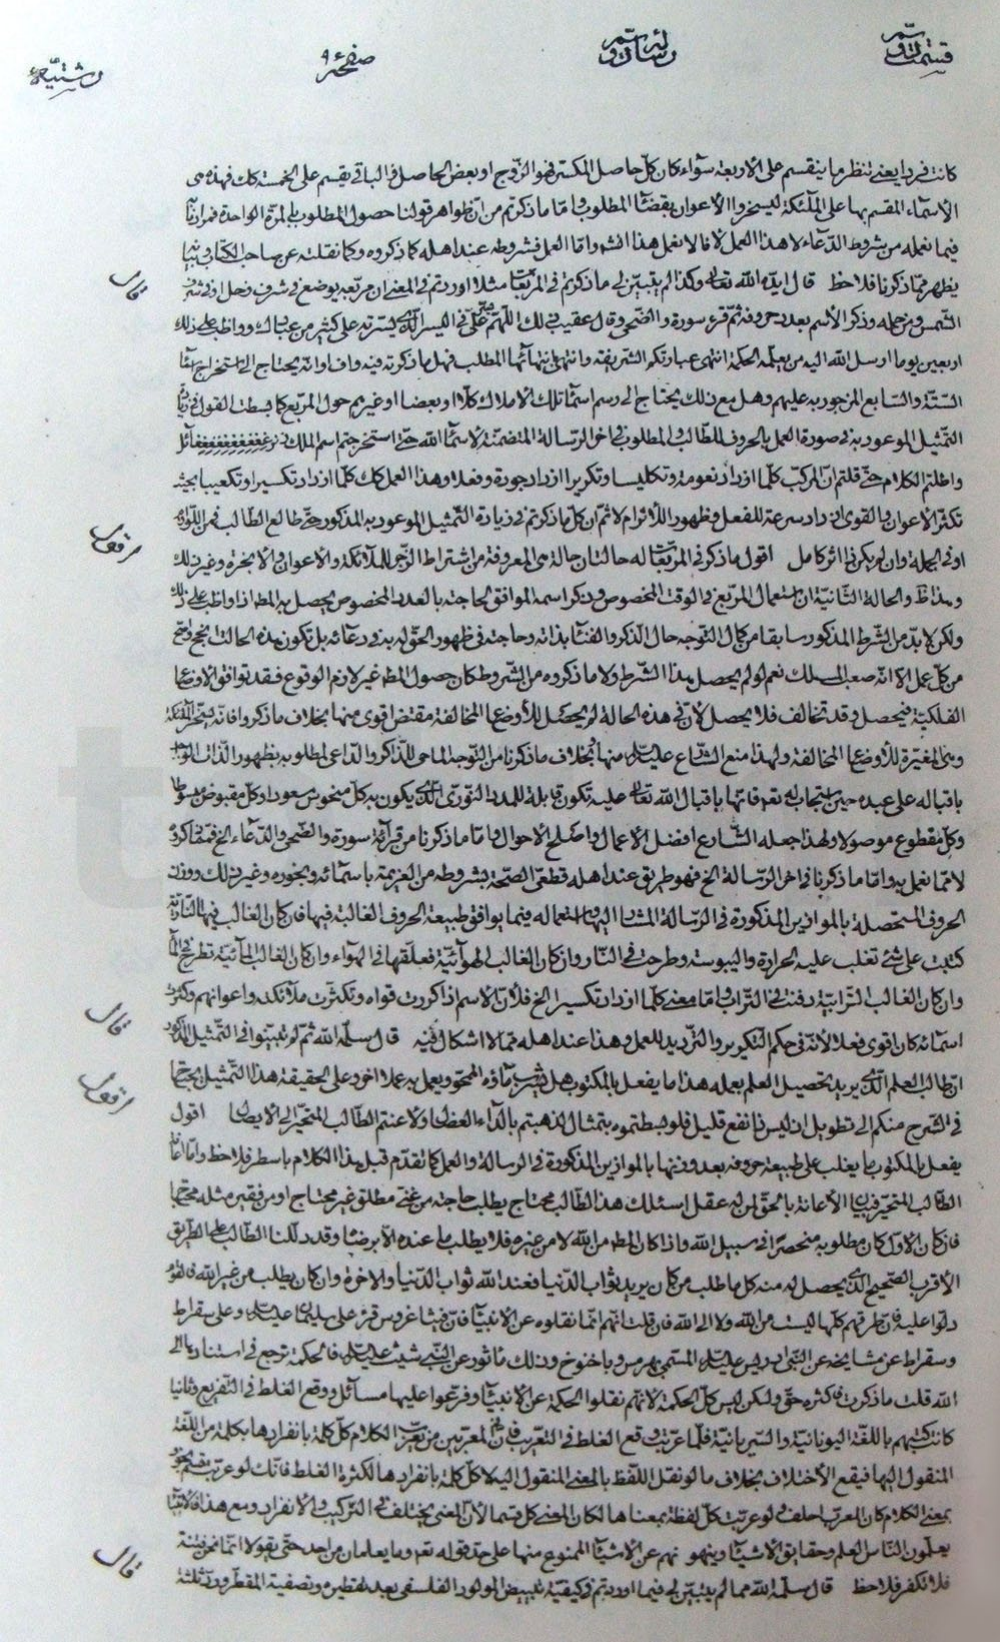 قسمت دوّم رسائل رشتیّه صفحهٔ ۹
كانت فردا يعنى تنظر ما ينقسم على الاربعة سواء كان كلّ حاصل المكسر فهو الزوج او بعض الحاصل فالباقى يقسم على الخمسة كك فهذه هى
الاسماء المقسم بها على الملئكة ليسخروا الاعوان بقضاء المطلوب و امّا ما ذكرتم من انّ ظواهر قولنا حصول المطلوب بالمرّة الواحدة فمرادنا
فيما نعمله من شروط الدّعاء لا هذا العمل لانّا لا نعمل هذا و امّا العمل فشروطه عند اهله كما ذكروه و كما نقلته عن صاحب الكتاب
يظهر ممّا ذكرنا فلاحظ قال ايّده الله تعالى و كذا لم يتبيّن لى ما ذكرتم فى المربّعات مثلا اوردتم فى المعنى ان مربّعه يوضع فى شرف زحل او فى شرف
قال
الشّمس و من حمله و ذكر الاسم بعدد حروفه ثمّ قرء سورة و الضّحى و قال عقيب ذلك اللّهمّ يسّر علىّ اليسر الّذى يسّرته على كثير من عبادك و واظب على ذلك
اربعين يوما ارسل الله اليه من يعلّمه الحكمة انتهى عبارتكم الشّريفة فهل ما ذكرته فيه واف او انّه يحتاج الى استخراج اسماء
الستّة و السّابع المزجور به عليهم و هل مع ذلك يحتاج الى رسم اسماء تلك الاملاك كلّا او بعضا او غيرهم حول المربّع كما بسطت القول فى
التّمثيل الموعود به فى صورة العمل بالحروف للطّالب و المطلوب فى اخر الرّسالة المتضمّنة لاسماء الله حتّى استخرجتم اسم الملك
و اطلتم الكلام حتّى قلتم انّ المركّب كلّما ازداد نعومة و تكليسا و تكريرا ازداد جودة و فعلا و هذا العمل كك كلّما ازداد تكسيرا و تكعيبا بحيث
تكثّر الاعوان و القوى ازداد سرعة للفعل و ظهور اللاثر ام لا ثمّ ان كلّ ما ذكرتم فى زيادة التّمثيل الموعود به المذكور حتّى طالع الطّالب
او فى الجملة و ان لم يكن فى اثر كامل اقول ما ذكر فى المربّعات له حالتان حالة هى المعروفة من اشتراط الزّجر للملائكة و الاعوان و الابخرة و غير ذلك
اقول
و هذا ظ و الحالة الثّانية ان استعمال المربّع فى الوقت المخصوص و ذكر اسمه الموافق للحاجة بالعدد المخصوص يحصل به المط اذا واظب على ذلك
و لكن لا بدّ من الشّرط المذكور سابقا من كمال التّوجه حال الذّكر و الفناء بذاته و حاجته فى ظهور الحقّ له به فى دعائه بل تكون هذه الحالة انجح
من كلّ عمل الّا انّه صعب المسلك نعم لو لم يحصل هذا الشّرط و لا ما ذكروه من الشّروط كان حصول المط غير لازم الوقوع فقد توافق الاوضاع
الفلكيّة فيحصل و قد تخالف فلا يحصل لان فى هذه الحالة لم يحصل للاوضاع المخالفة مقتض اقوى منها بخلاف ما ذكروا
المغيّرة للاوضاع المخالفة و لهذا منع الشّارع عليه السلام منها بخلاف ما ذكرنا من التّوجه الماحى للذّاكر و الدّاعى لمطلوبه بظهور الذّات
باقباله على عبده حين استجاب له نعم فانّها باقبال الله تعالى عليه تكون قابلة للمدد النّورى الّذى يكون به كلّ منحوس مسعودا و كلّ مقبوض مبسوطا
و كلّ مقطوع موصولا و لهذا جعله الشّارع افضل الاعمال و اصلح الاحوال و امّا ما ذكرنا من قرائة سورة و الضّحى و الدّعاء الخ
لا ممّا نعمل به و امّا ما ذكرنا فى اخر الرّسالة الخ فهو طريق عند اهله قطعىّ الصحّة بشروطه من العزيمة باسمائه و بخوره و غير ذلك و وزن
الحروف المستحصلة بالموازين المذكورة فى الرّسالة المشار اليها و استعماله فيما يوافق طبيعة الحروف الغالبة فيها فان كان الغالب فيها النّاريّة
كتبت على شئ تغلب عليه الحرارة و اليبوسة و طرحت فى النّار و ان كان الغالب الهوائيّة فعلّقها فى الهواء و ان كان الغالب المائيّة تطرح فى الماء
و ان كان الغالب التّرابيّة دفنت فى التّراب و امّا معنى كلّما ازداد تكسيرا الخ فلانّ الاسم اذا كرّرت قواه و تكثّرت ملائكته و اعوانهم
اسمائه كان اقوى فعلا لانّه فى حكم التّكرير و التّرديد للعمل و هذا عند اهله ممّا لا اشكال فيه قال سلّمه الله ثمّ لم تبيّنوا فى التّمثيل المذكور
قال
انّ طالب العلم الّذى يريد تحصيل العلم بعمله هذا ما يفعل بالمكتوب هل يشرب ماؤه الممحو و يعمل به عملا اخر و على الحقيقة هذا التّمثيل يحتاج
فى الشّرح منكم الى تطويل اذ ليس نافع قليل فلو بسطتموه بتمثال لذهبتم بالدّاء العضال و لاعنتم الطّالب المتحيّر الى الايصال اقول
اقول
يفعل بالمكتوب ما يغلب على طبيعة حروفه بعد وزنها بالموازين المذكورة فى الرسالة و العمل كما تقدّم قبل هذا الكلام باسطر فلاحظ و امّا اعانة
الطّالب المتحيّر الاعانة بالحقّ لمن له عقل اسئلك هذا الطّالب محتاج يطلب حاجته من غنىّ مطلق غير محتاج او من فقير مثله محتاج
فان كان الاوّل كان مطلوبه منحصرا فى سبيل الله و اذا كان المط من الله لا من غيره فلا يطلب ما عنده الّا برضاه و قد دللنا الطّالب على الطّريق
الاقرب الصّحيح الّذى يحصل له منه كل ما طلب من كان يريد ثواب الدّنيا فعند الله ثواب الدّنيا و الاخرة و ان كان يطلب من غير الله
دلّوا عليه فانّ طرقهم كلّها ليست من الله و لا الى الله فان قلت انّهم انّما نقلوه عن الانبياء فانّ فيثاغورس قرء على سليمان عليه السلام و على سقراط
و سقراط عن مشايخه عن النّبى ادريس عليه السلام المسمّى بهرمس و باخنوخ و ذلك ماثور عن النّبى شيث عليه السلام فالحكمة ترجع فى استنادها الى
الله قلت ما ذكرت فاكثره حقّ و لكن ليس كلّ الحكمة لانّهم نقلوا الحكمة عن الانبياء و فرّعوا عليها مسائل و وقع الغلط فى التّفريع و ثانيا
كانت كتبهم باللغة اليونانيّة و السّريانيّة فلمّا عرّبت وقع الغلط فى التّعريب فانّ من المعرّبين من يعرّب الكلام كلّ كلمة بانفرادها بكلمة من اللّغة
المنقول اليها فيقع الاختلاف بخلاف ما لو نقل اللّفظ بالمعنى المنقول اليه لا كلّ كلمة بانفرادها لكثرة الغلط فانّك لو عرّبت
بمعنى الكلام كان المعرّب احلف و لو عرّبت كلّ لفظة بمعناها لكان المعنى كل قسما لانّ المعنى يختلف فى التّركيب و الانفراد و مع هذا
يعلّمون النّاس العلم و حقايق الاشياء و ينهونهم عن الاشياء الممنوع منها على حدّ قوله تعالى و ما يعلّمان من احد حتّى يقولا انّما نحن فتنة
فلا تكفر فلاحظ قال سلّمه الله ممّا لم يتبيّن لى فيما اوردتم فى كيفيّة تبييض المولود الفلسفى بعد تقطيره و تصفية المقطّر
قال